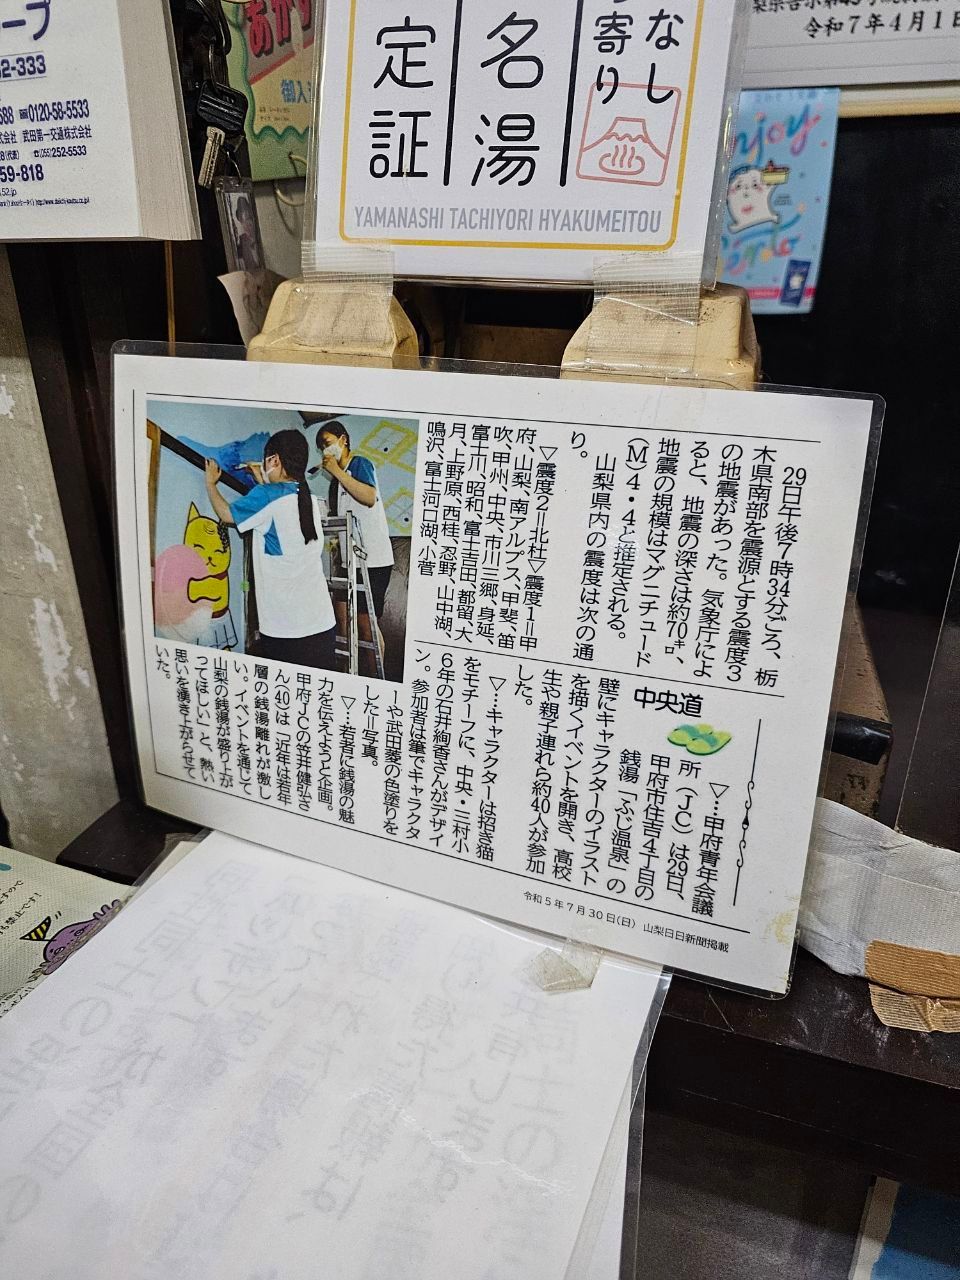 ープ
2-333
688 ☎0120-58-5533
武田第一交通株式会社
☎(055)252-5533
59-818
御入
なし
寄り
名湯
定証
YAMANASHI TACHIYORI HYAKUMEITOU
令和7年4月1日
Enjoy
29日午後7時34分ごろ、栃
木県南部を震源とする震度3
の地震があった。気象庁によ
ると、地震の深さは約70㌔、
地震の規模はマグニチュード
(M)4・4と推定される。
山梨県内の震度は次の通
り。
▽震度2＝北杜▽震度1＝甲
府、山梨、南アルプス、甲斐、笛
吹、甲州、中央、市川三郷、身延、
富士川、昭和、富士吉田、都留、大
月、上野原、西桂、忍野、山中湖、
鳴沢、富士河口湖、小菅
中央道
▽…甲府青年会議
所(JC)は29日、
甲府市住吉4丁目の
銭湯「ふじ温泉」の
壁にキャラクターのイラスト
を描くイベントを開き、高校
生や親子連れら約40人が参加
した。
▽…キャラクターは招き猫
をモチーフに、中央・三村小
6年の石井絢香さんがデザイ
ン。参加者は筆でキャラクタ
ーや武田菱の色塗りを
した＝写真。
▽…若者に銭湯の魅
力を伝えようと企画。
甲府JCの笠井健弘さ
ん(40)は「近年は若年
層の銭湯離れが激し
い。イベントを通じて
山梨の銭湯が盛り上が
ってほしい」と、熱い
思いを湧き上がらせて
いた。
令和5年7月30日(日) 山梨日日新聞掲載